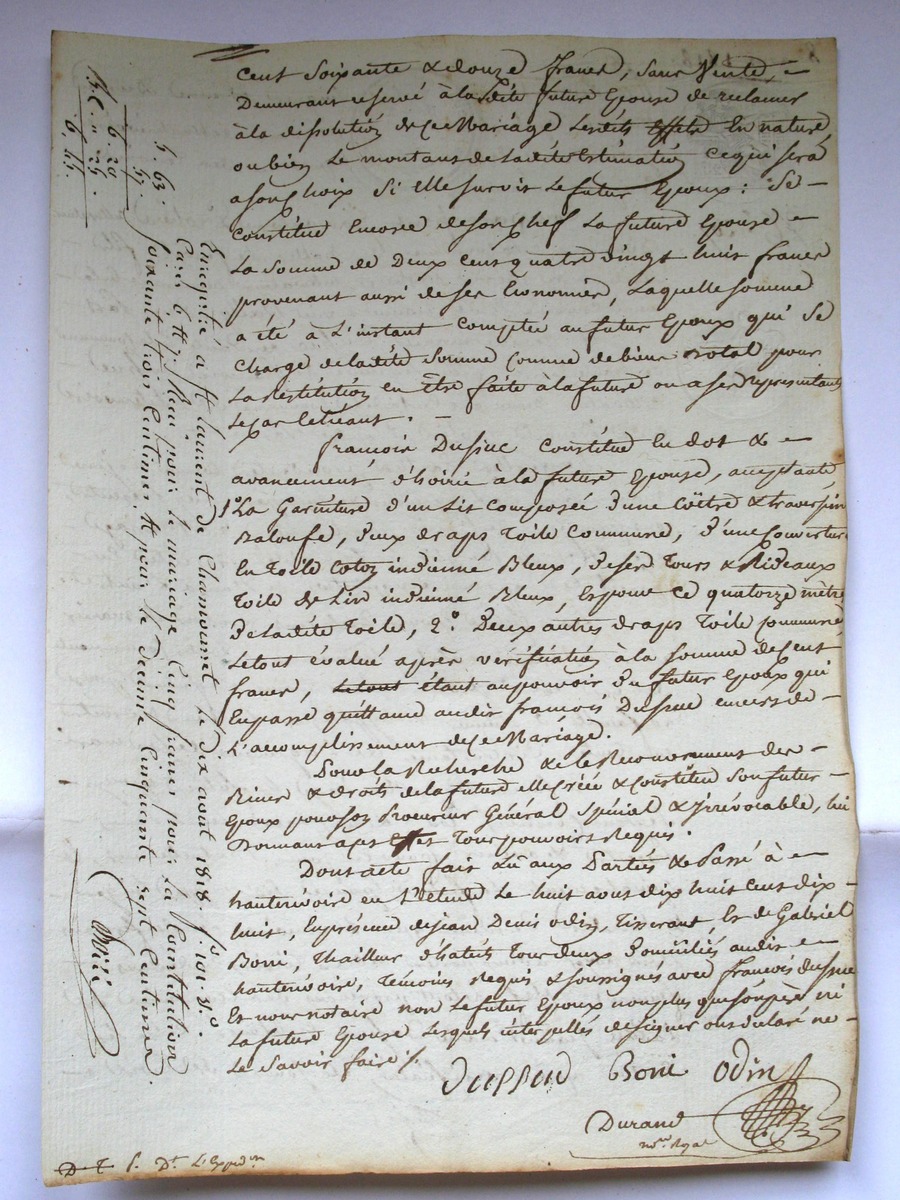 cent soixante & douze francs, sans vente, –
Demeurant reservé à la dite future Epouse de reclamer
à la dissolution de ce Mariage lesdits effets en nature
ou bien le montant de la dite Estimation ce qui sera
a son choix si elle survit le futur Epoux : Se –
Constitue encore de son chef la future Epouse –
La Somme de Deux cent quatre vingt huit francs
provenant aussi de ses Economies, Laquelle somme
a été à l'instant comptée au futur Epoux qui se
charge de la dite somme comme de bien dotal pour
la restitution en être faite à la future ou a ses representants
le cas échéant. –
François Dussuc constitue en dot & –
avancement d'hoirie à la future Epouse, acceptante
1° La Garniture d'un Lit composée d'une Coëtre & traversin
Baloufe, deux draps toile commune, d'une couverture
en toile coton indienné Bleux, de ses tours & Rideaux
toile de Lin indienné Bleux, Est pour ce quatorze mètre
de la dite toile, 2° Deux autres draps toile commune
le tout évalué après vérification à la somme de cent
francs, le tout étant au pouvoir du futur Epoux qui
en passe quittance audit françois Dussuc envers de –
l'accomplissement de ce Mariage.
Pour la Recherche & le Recouvrement des –
Biens & droits de la future elle crée & constitue son futur
Epoux pour son Procureur Général Spécial & Irrévocable, lui
Donnant à ces effets tous pouvoirs Requis.
Dont acte fait Lû aux Parties & Passé à –
hauterivoire en l'Etude le huit aout dix huit cent dix –
huit, En présence de jean Denis odin, Tisserant, Et de Gabriel
Boni, Thailleur d'habits tous deux domiciliés audit –
hauterivoire, Témoins Requis & soussignés avec françois dussuc
Et nous notaire non le futur Epoux non plus que son père ni
la future Epouse Lesquels interpellés de signer ont déclaré ne –
le savoir faire /.
Dussud Boni Odin
Durand
not.re Royal
D. T. P. Dt. L'Expédon
Enregistré a St Laurent de Chamousset le dix aout 1818. fo 101. Vo.
Cases 6 et 7, Reçu pour le mariage Cinq francs pour la Constitution
soixante trois centimes, et pour le décime Cinquante sept Centimes.
5. 63.
57.
6. 20
6. 45.